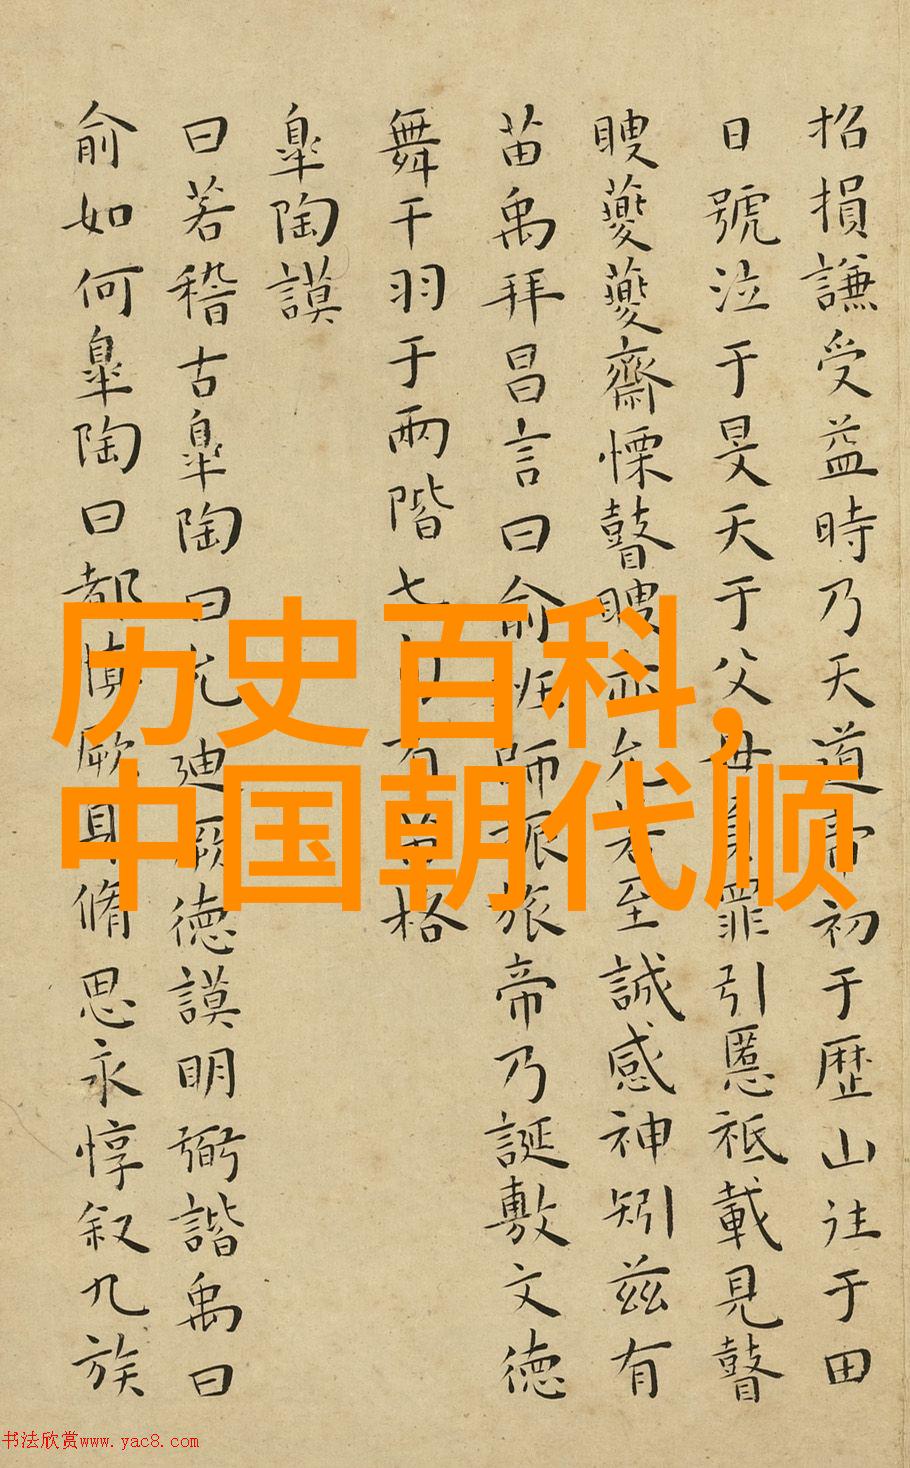 招損謙受益時乃天道帝初于歴山往于田
日號泣于旻天于父母負罪引慝祗載見瞽
瞍夔夔齋慄瞽瞍亦允若至誠感神矧兹有
苗禹拜昌言曰俞班師振旅帝乃誕敷文德
舞干羽于兩階七旬有苗格
皐陶謨
曰若稽古皐陶曰允迪厥德謨明弼諧禹曰
俞如何皐陶曰都慎厥身脩思永惇叙九族
历史百科,
中国朝代顺
书法欣赏www.yac8.com